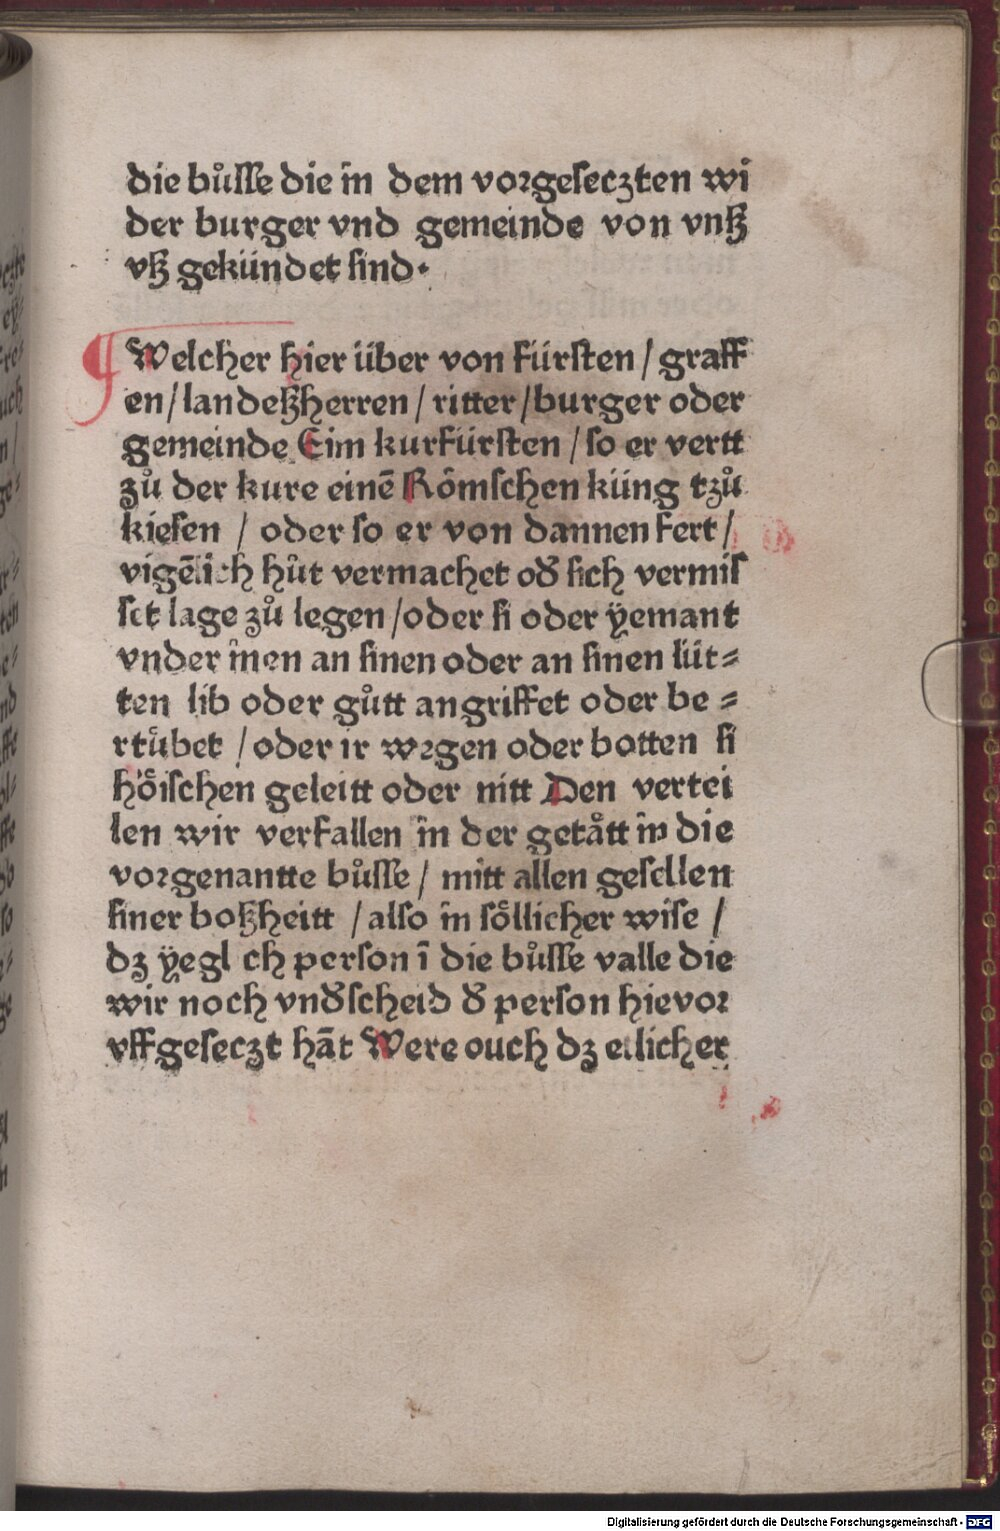 die bůsse die in dem vorgeseczten wi
der burger vnd gemeinde von vnß
vß gekündet sind·
Welcher hier über von fürsten / graff
en / landeßherren / ritter / burger oder
gemeinde Eim kurfürsten / so er vertt
zů der kure einē Rőmschen küng tzů
kiesen / oder so er von dannen fert /
vigēlich hůt vermachet od̕ sich vermis
set lage zů legen / oder si oder ÿemant
vnder inen an sinen oder an sinen lüt⸗
ten lib oder gůtt angriffet oder be⸗
rtübet / oder ir wegen oder botten si
höischen geleitt oder nitt Den vertei
len wir verfallen in der getått in die
vorgenantte bůsse / mitt allen gesellen
siner boßheitt / also in söllicher wise /
dz ÿegl ch person ī die bůsse valle die
wir noch vnd̕scheid d̕ person hievor
vffgeseczt hāt Were ouch dz etlicher
Digitalisierung gefördert durch die Deutsche Forschungsgemeinschaft - DFG